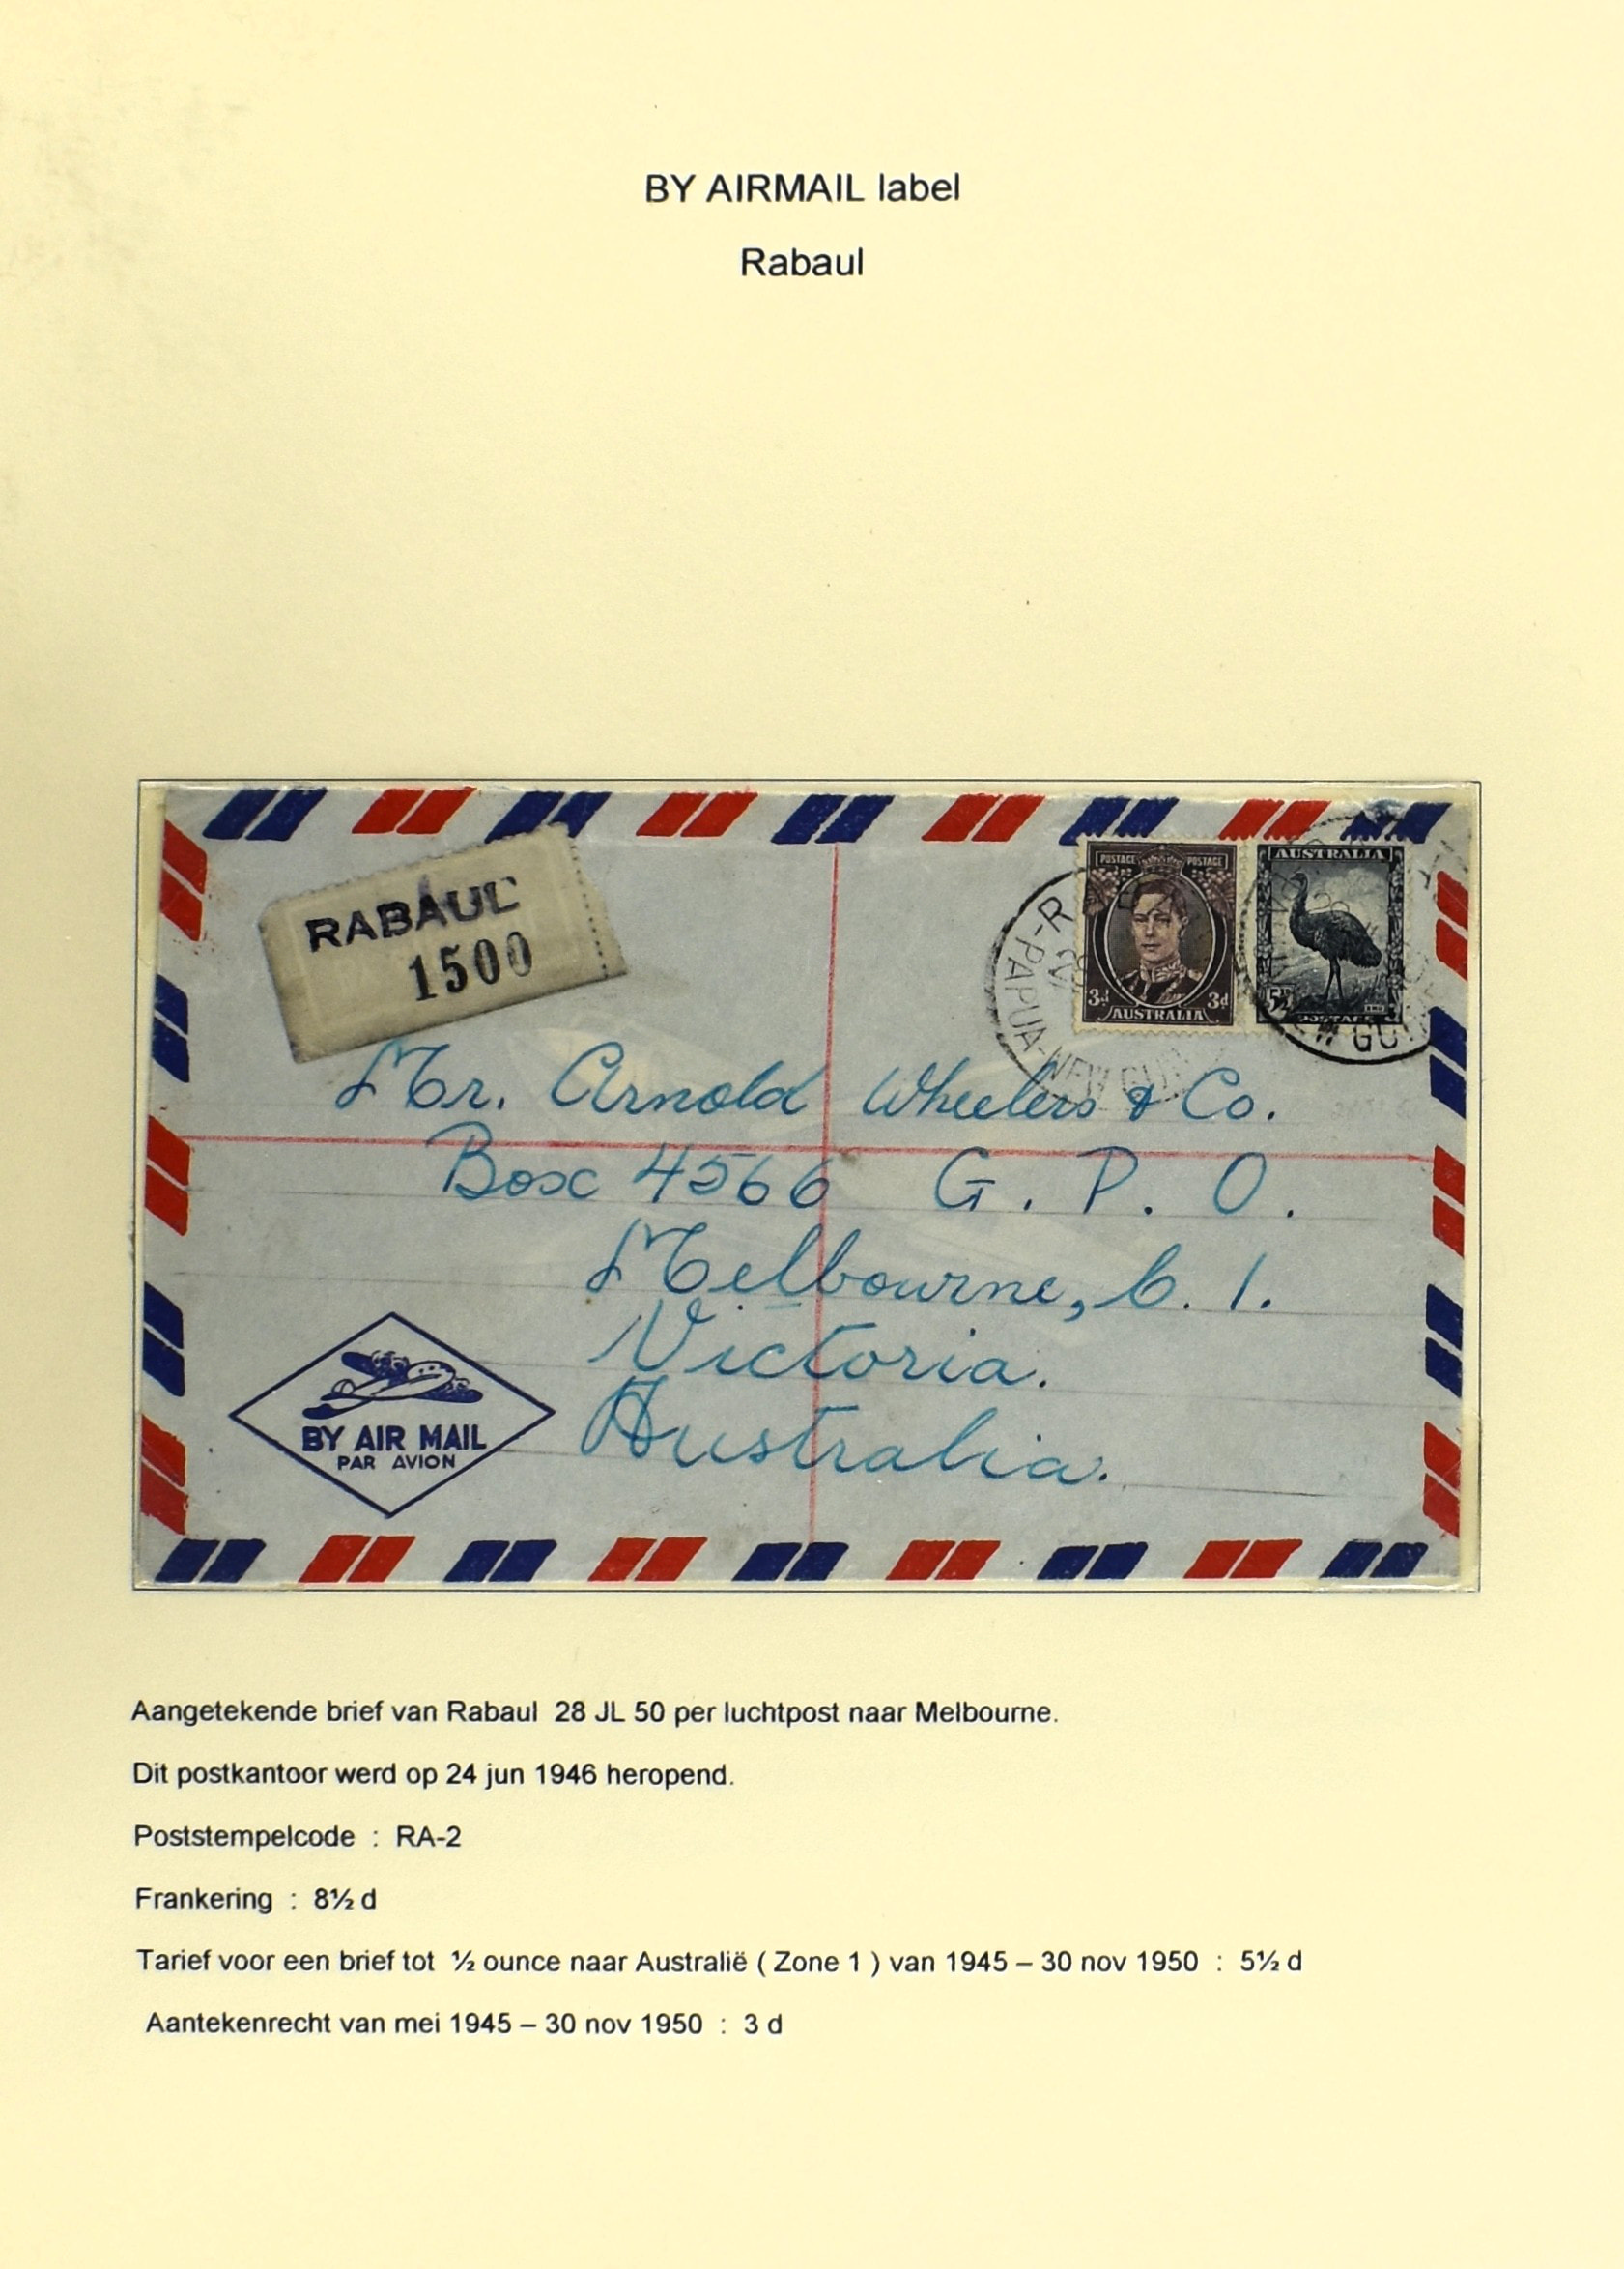 BY AIRMAIL label
Rabaul
RABAUL
1500
POSTAGE POSTAGE
3d 3d
AUSTRALIA
AUSTRALIA
5½D
POSTAGE
PAPUA-NEW GUIN
Mr. Arnold Wheelers & Co.
Box 4566 G. P. O.
Melbourne, C. 1.
Victoria.
Australia.
BY AIR MAIL
PAR AVION
Aangetekende brief van Rabaul 28 JL 50 per luchtpost naar Melbourne.
Dit postkantoor werd op 24 jun 1946 heropend.
Poststempelcode : RA-2
Frankering : 8½ d
Tarief voor een brief tot ½ ounce naar Australië ( Zone 1 ) van 1945 – 30 nov 1950 : 5½ d
Aantekenrecht van mei 1945 – 30 nov 1950 : 3 d